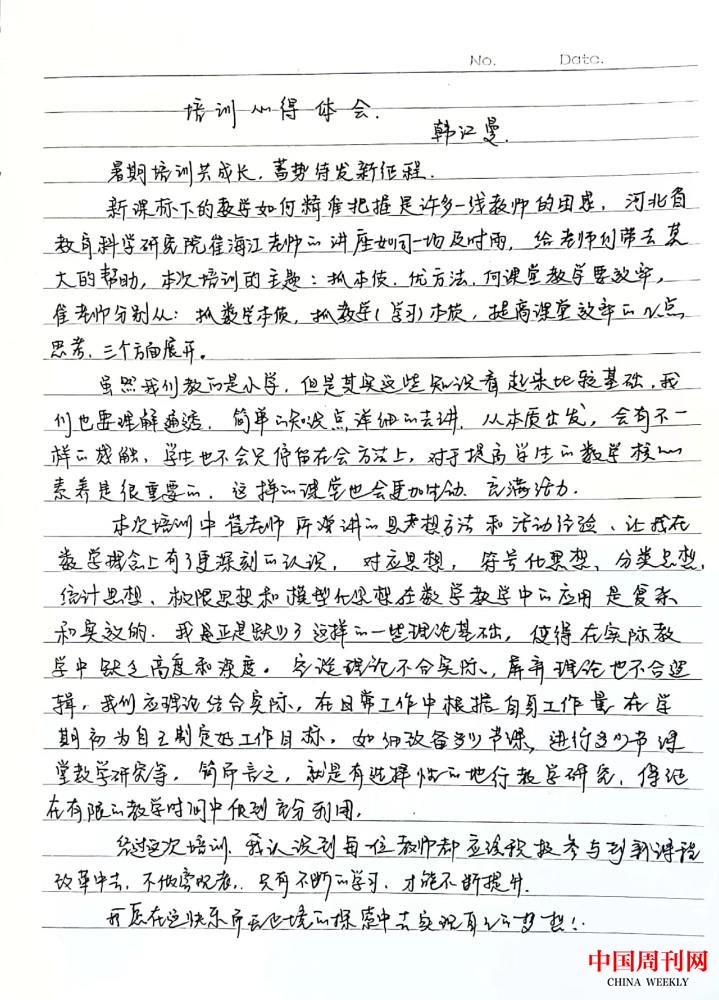 No. Date.
培训心得体会.
韩江曼.
暑期培训共成长,蓄势待发新征程.
新课标下的教学如何精准把握是许多一线教师的困惑,河北省
教育科学研究院崔海江老师的讲座如同一场及时雨,给老师们带去莫
大的帮助,本次培训的主题:抓本质.优方法.向课堂教学要效率,
崔老师分别从:抓数学本质,抓教学(学习)本质,提高课堂效率的几点
思考.三个方面展开。
虽然我们教的是小学,但是其实这些知识看起来比较基础,我
们也要理解通透.简单的知识点详细的去讲.从本质出发,会有不一
样的感触,学生也不会只停留在会方法上,对于提高学生的数学核心
素养是很重要的.这样的课堂也会更加生动.充满活力.
本次培训中崔老师所演讲的思考想方法和活动经验、让我在
教学概念上有了更深刻的认识,对应思想,符号化思想、分类思想,
统计思想、极限思想和模型化思想在数学教学中的应用是复杂
和实效的.我是正是缺少了这样的一些理论基础,使得在实际教
学中缺乏高度和深度。空谈理论不合实际,屏弃理论也不合逻
辑,我们应理论结合实际,在日常工作中根据自身工作量在学
期初为自己制定好工作目标,如细改备多少节课、进行多少节课
堂教学研究等,简而言之,就是有选择性的地行教学研究,保证
在有限的教学时间中做到充分利用.
经过这次培训.我认识到每一位教师都应该积极参与到新课程
改革中去,不做旁观者,只有不断的学习,才能不断提升.
我愿在这快乐而无止境的探索中去实现自己的梦想!
中国周刊网
CHINA WEEKLY